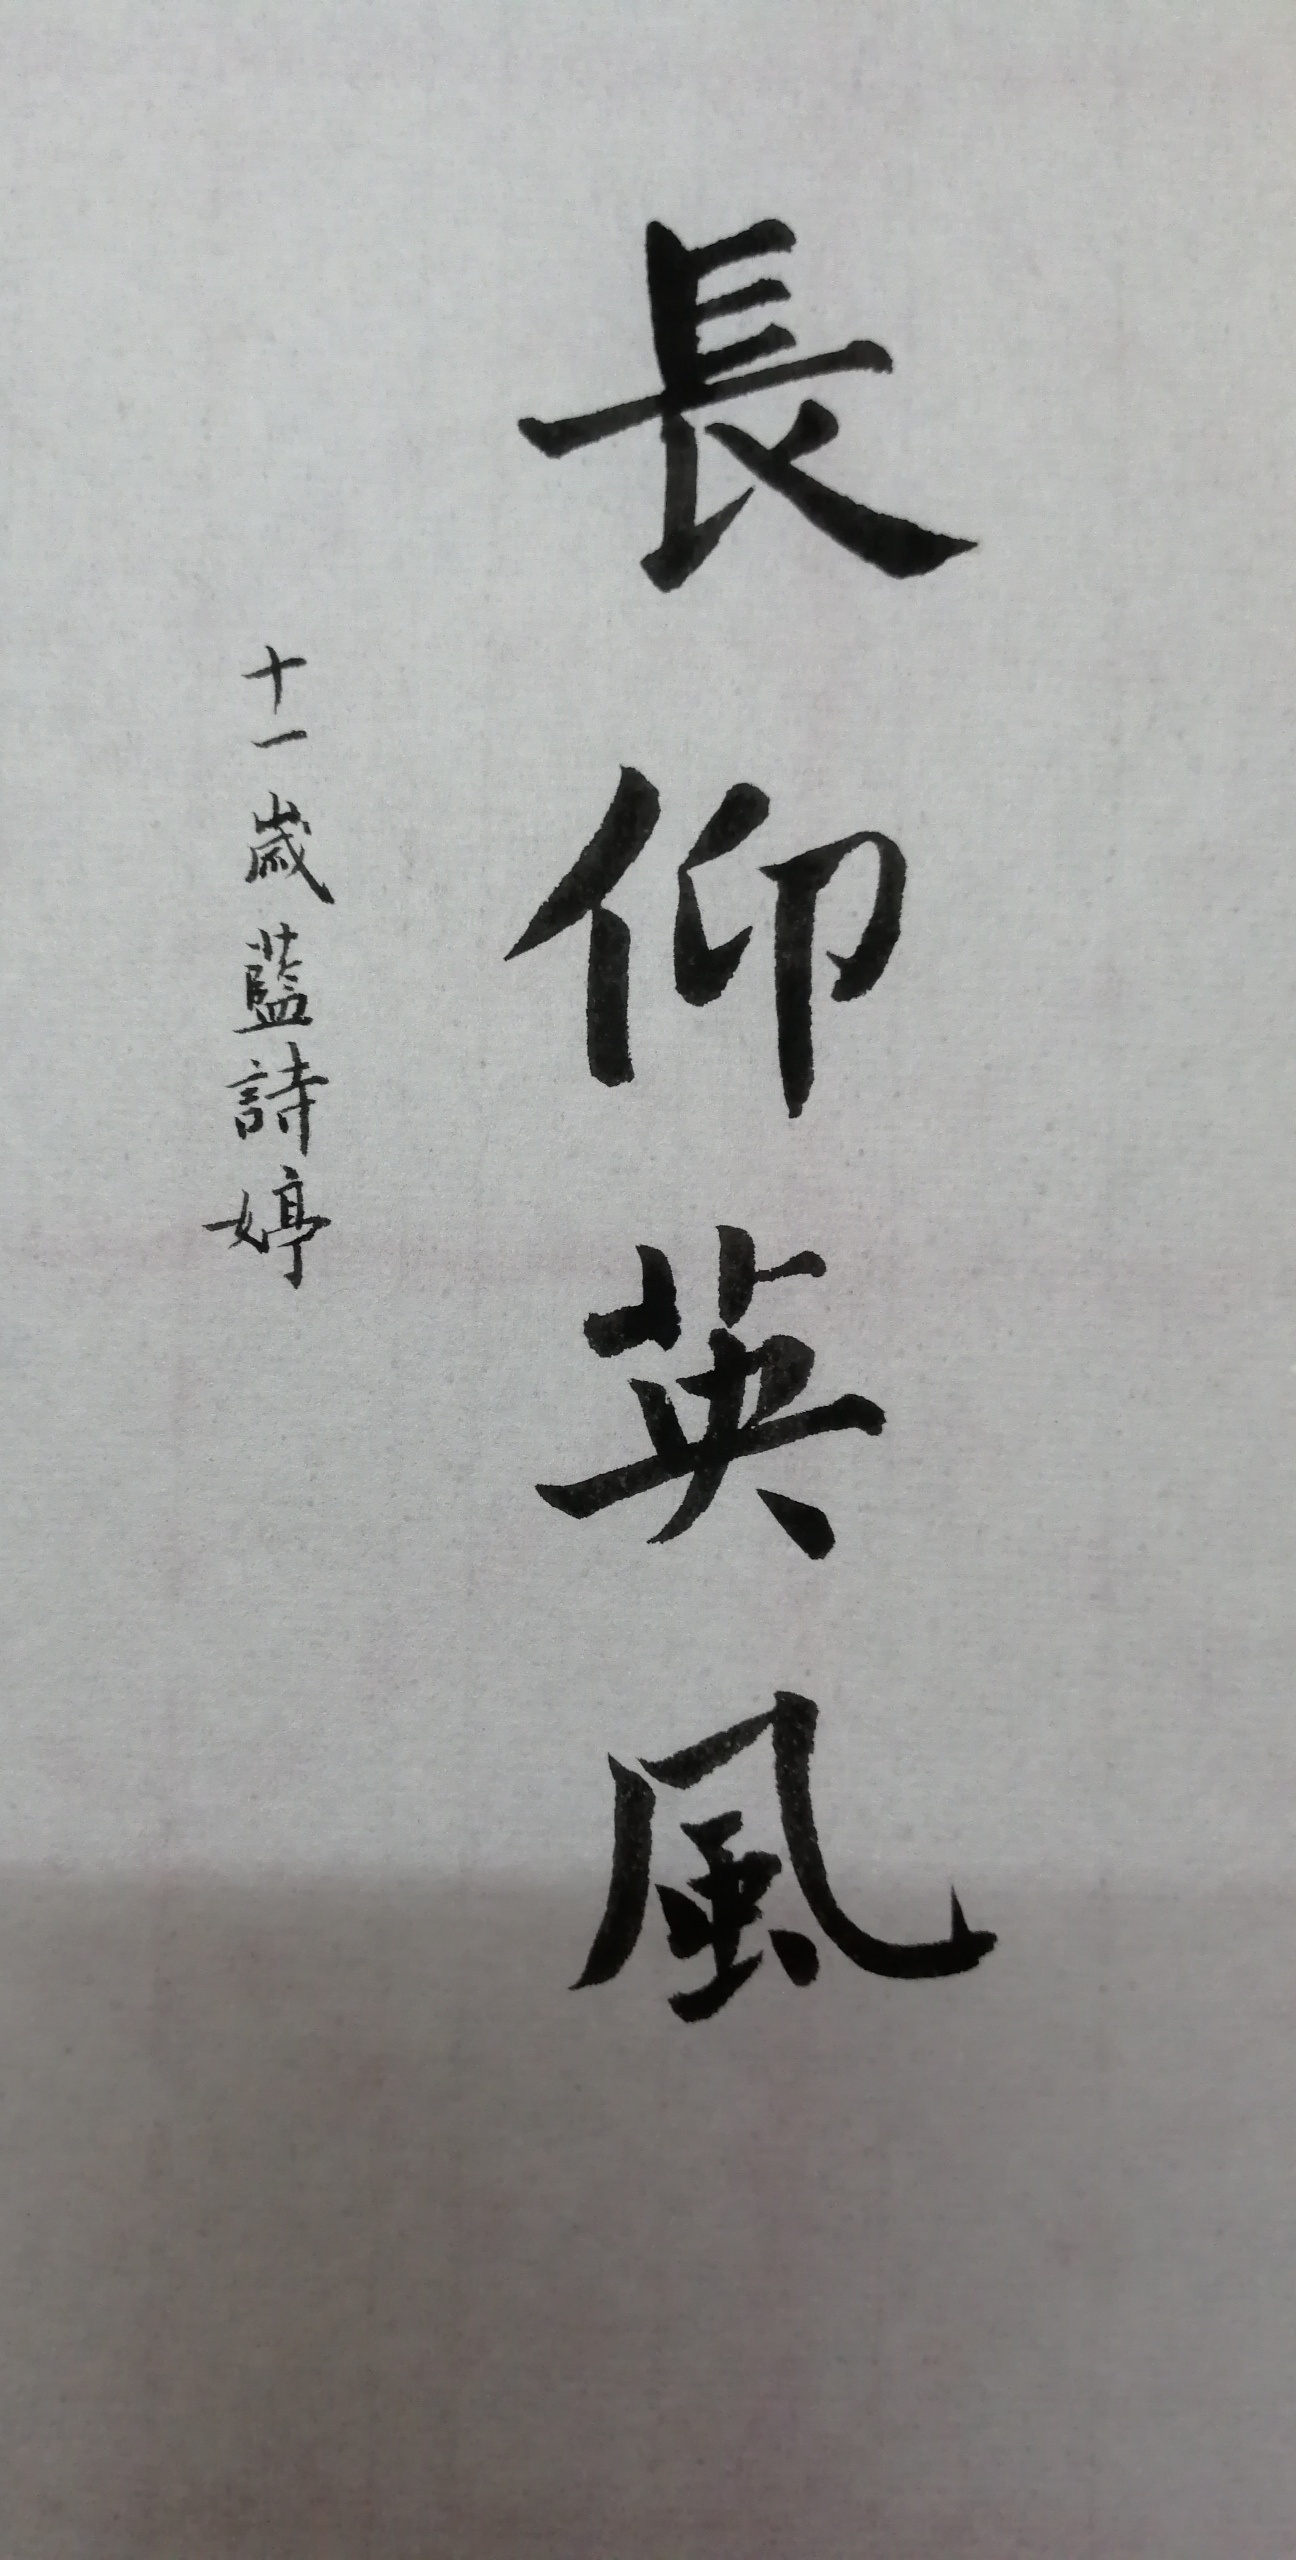 長仰英風
十一歲藍詩婷